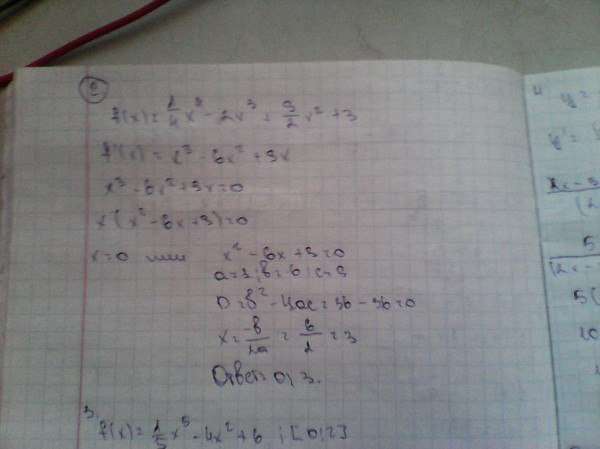 2
f(x)=1/4 x⁴ - 2x³ + 9/2 x² + 3
f'(x)=x³ - 6x² + 9x
x³ - 6x² + 9x = 0
x(x² - 6x + 9)=0
x=0 или x² - 6x + 9 = 0
a=1; b=-6; c=9
D=b² - 4ac = 36 - 36 = 0
x = -b/2a = 6/2 = 3
Ответ: 0; 3.
3 f(x)=1/5 x⁵ - 4x² + 6 ; [0;2]
4 y =
y' =
5
5(